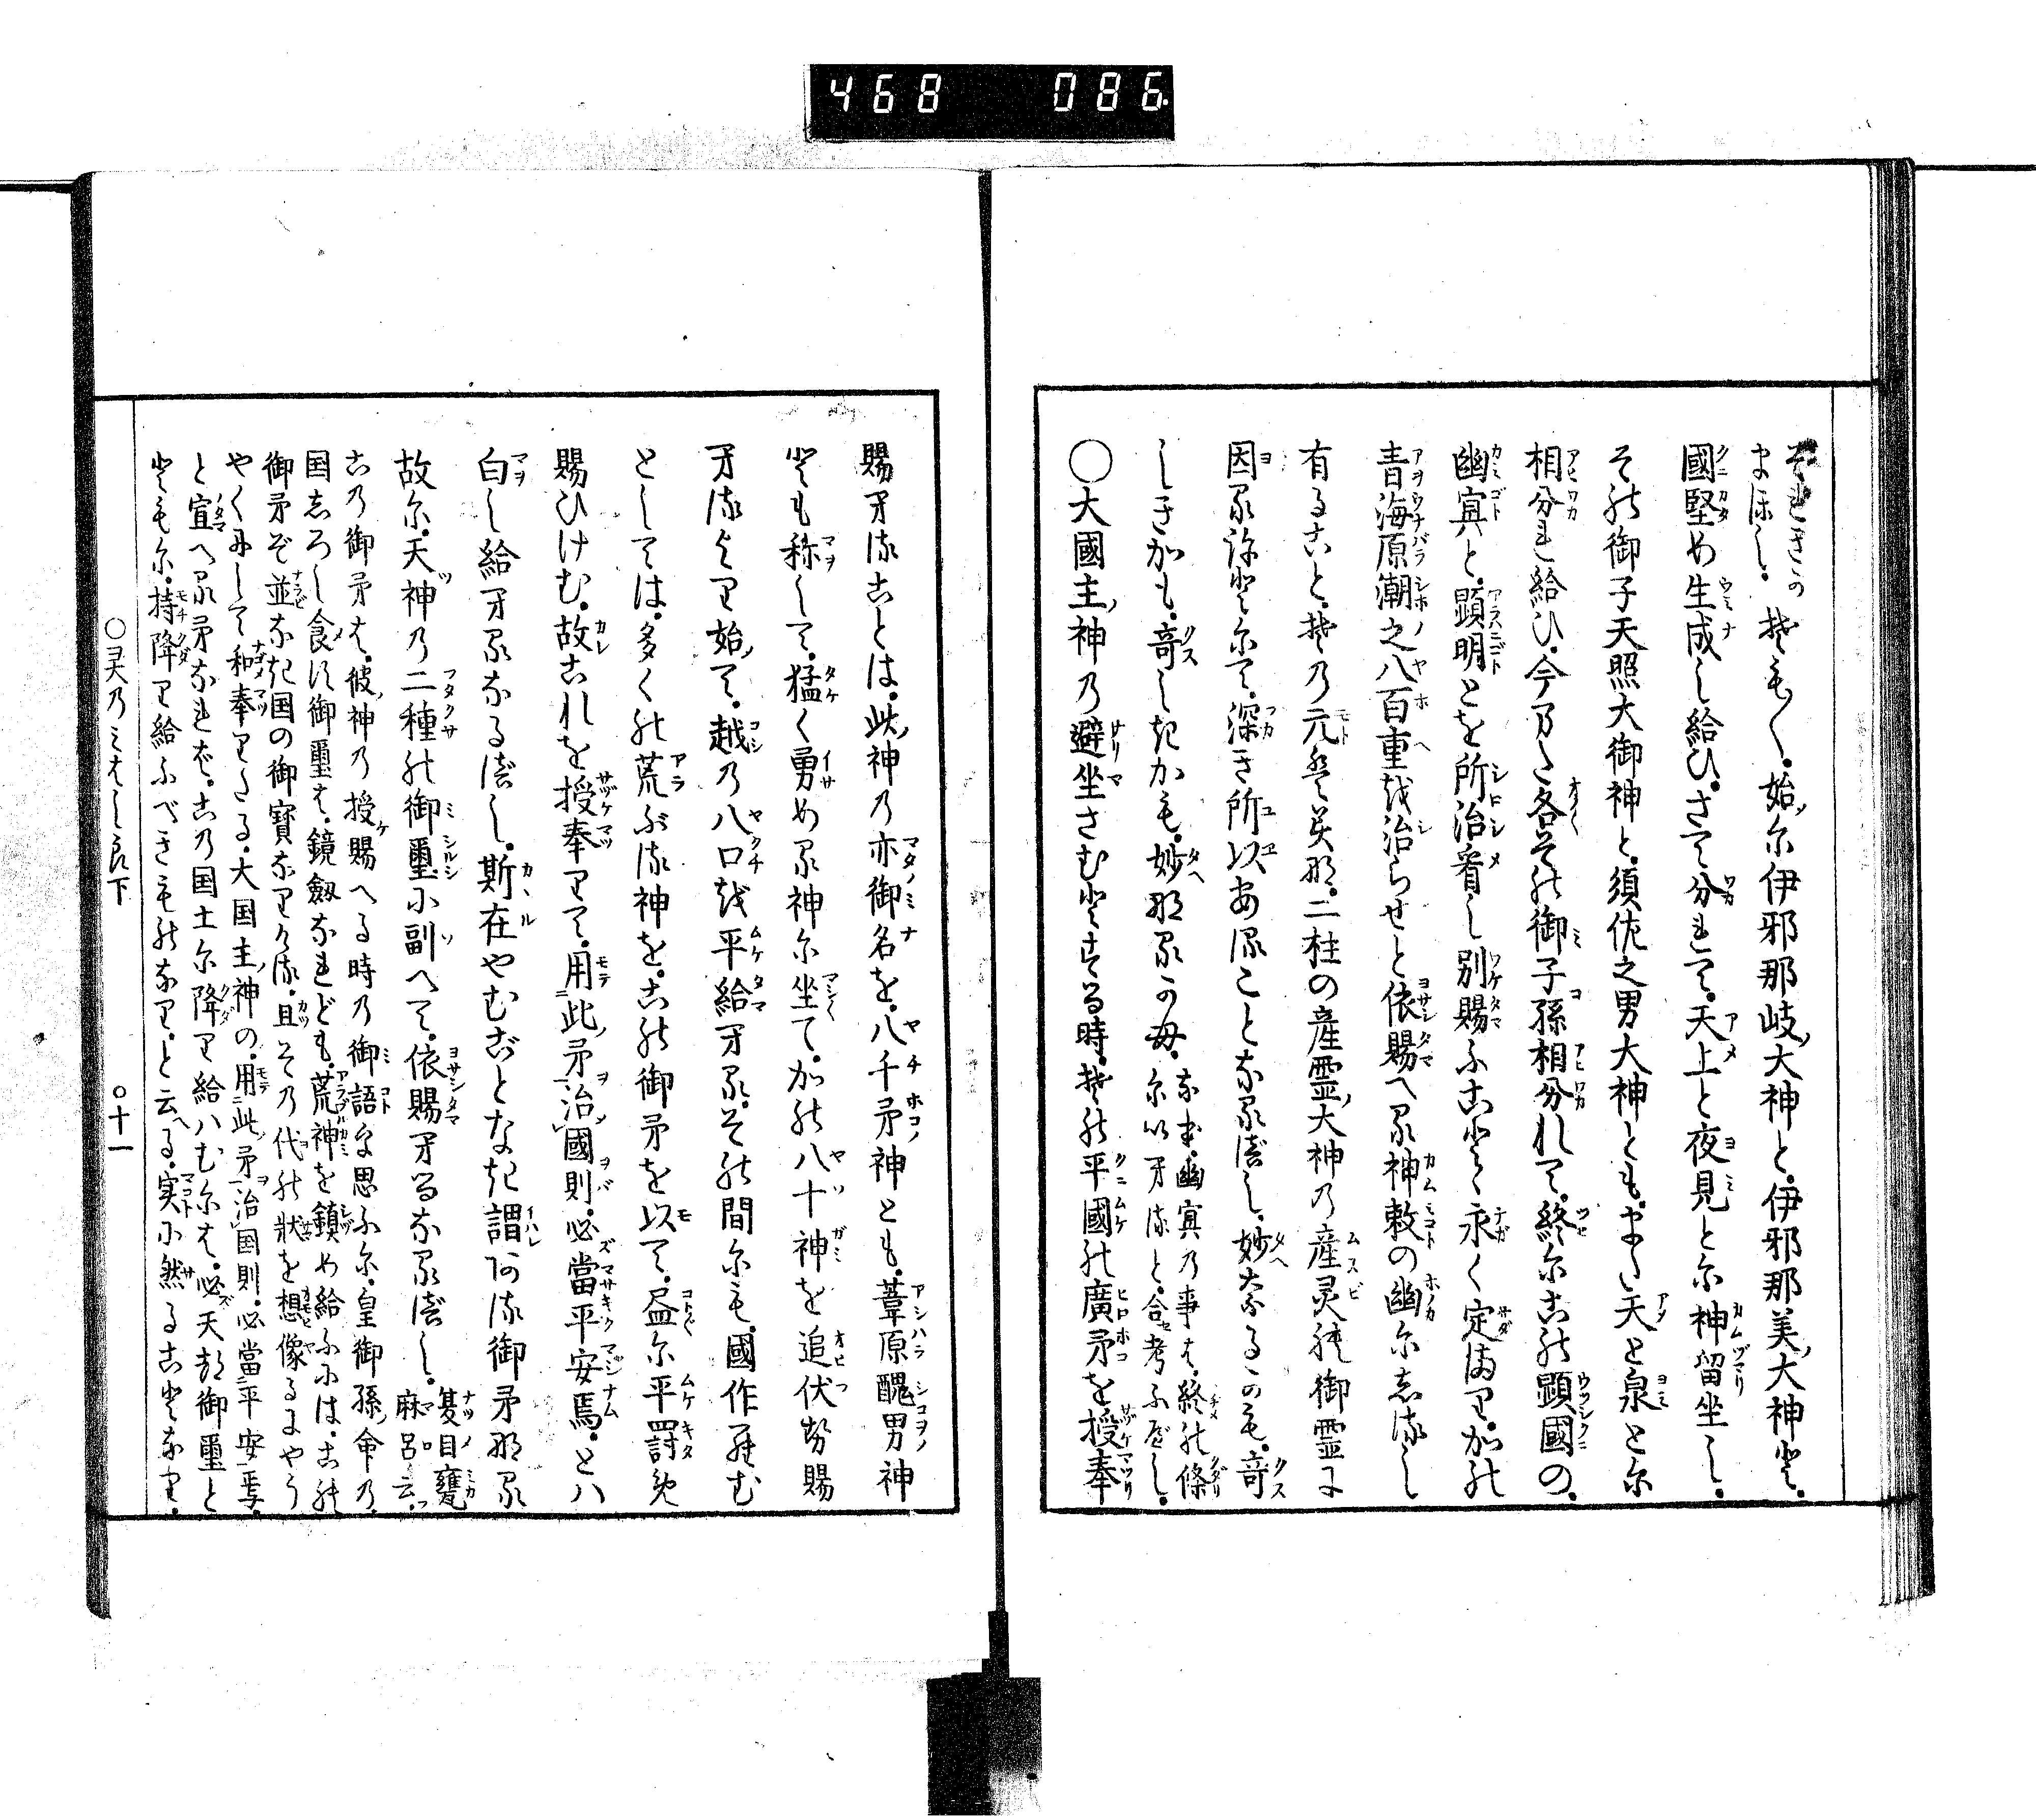 468 086
まほし。抑も〱。始に伊邪那岐ノ大神と。伊邪那美ノ大神と。
國堅め生成し給ひ。さて分れて。天上と夜見とに神留坐し。
その御子天照大御神と。須佐之男大神とも。また天と泉とに
相分れ給ひ。今また各その御子孫相分れて。終にこの顕國の。
幽冥と。顕明とを所治看し別賜ふこと永く定まり。かの
青海原潮之八百重を治らせと依賜へる神敕の幽にしるし
有ること。その元は。二柱の産霊ノ大神の産灵の御霊に
因る
にて。深き所以あることなるべし。妙なるかも。奇
しきかも。奇しきかも。妙なるかも。なほ幽冥の事は。終の條
にいへると。合せ考ふべし。
○大國主ノ神の避坐さむとする時。その平國の廣矛を授奉
賜へることは。此ノ神の亦御名を。八千矛神とも。葦原醜男神
とも称して。猛く勇める神に坐て。かの八十神を追伏せ賜
へるより始めて。越の八口を平給へる。その間にも。國作らむ
としては。多くの荒ぶる神を。この御矛を以て。尽に平罸め
賜ひけむ。故これを授奉りて。用此ノ矛治國則。必當平安焉。とハ
白し給へるなるべし。斯在やむごとなき謂ある御矛なる
故に。天神の二種の御璽に副へて。依賜へるなるべし。夏目甕
麻呂云。
この御矛は。彼ノ神の授賜へる時の御語を思ふに。皇御孫ノ命の。
国しろし食す御璽は。鏡劔なれども。荒神を鎮め給ふには。この
御矛ぞ並なき国の御寶なりける。且その代の状を想像るにやう
やくにして和奉りたる。大国主ノ神の。用此ノ矛治国則。必當平安焉。
と宣へる矛なれば。この国土に降り給ハむには。必天つ御璽と
ともに。持降り給ふべきものなり。と云へる。実に然ることなり。
○ヨ天のみはしら下 ○十一